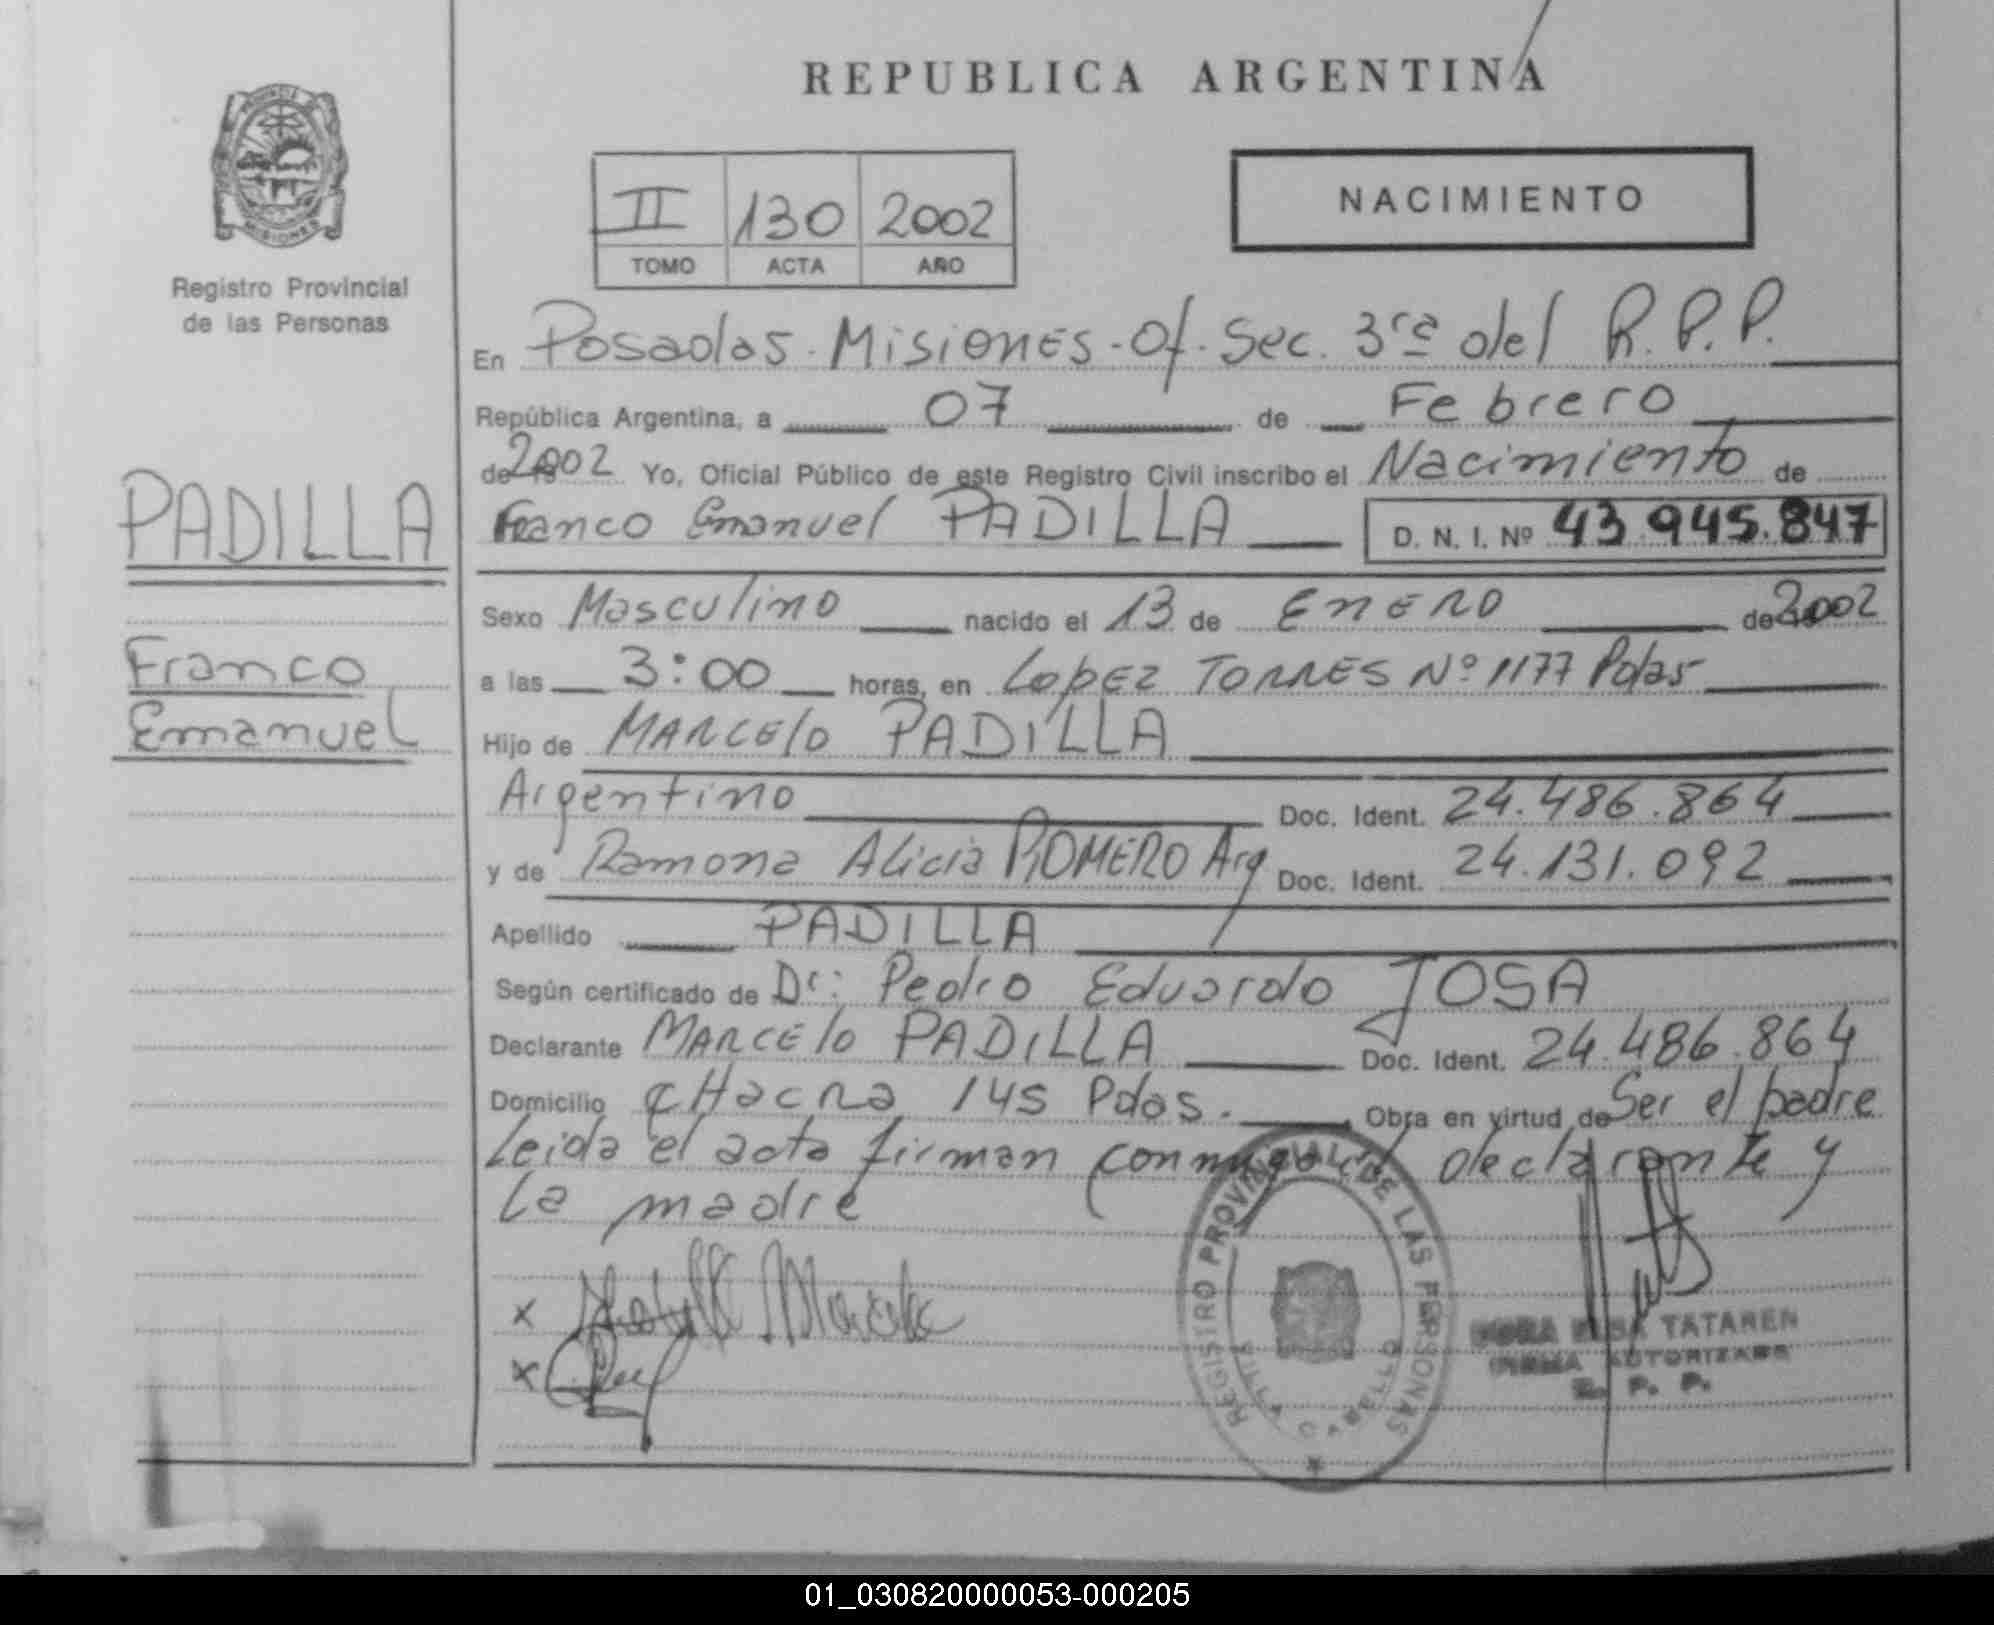 REPUBLICA ARGENTINA
PROVINCIA DE
MISIONES
Registro Provincial
de las Personas
II 130 2002
TOMO ACTA AÑO
NACIMIENTO
En Posadas - Misiones - Of. Sec. 3ra del R.P.P.
República Argentina, a 07 de Febrero
de 2002 Yo, Oficial Público de este Registro Civil inscribo el Nacimiento de
Franco Emanuel PADILLA D. N. I. Nº 43.945.847
PADILLA
Franco
Emanuel
Sexo Masculino nacido el 13 de ENERO de 2002
a las 3:00 horas, en Lopez TORRES Nº 1177 Pdas
Hijo de MARCElo PADILLA
Argentino Doc. Ident. 24.486.864
y de Ramona Alicia ROMERO Arg Doc. Ident. 24.131.092
Apellido PADILLA
Según certificado de Dr: Pedro Eduardo JOSA
Declarante MARCElo PADILLA Doc. Ident. 24.486.864
Domicilio CHacra 145 Pdas. Obra en virtud de Ser el padre
Leida el acta firman conmigo el declarante y
La madre
x
x
REGISTRO PROVINCIAL DE LAS PERSONAS
VILLA CABELLO
TATAREN
FIRMA AUTORIZADA
R. P. P.
01_030820000053-000205